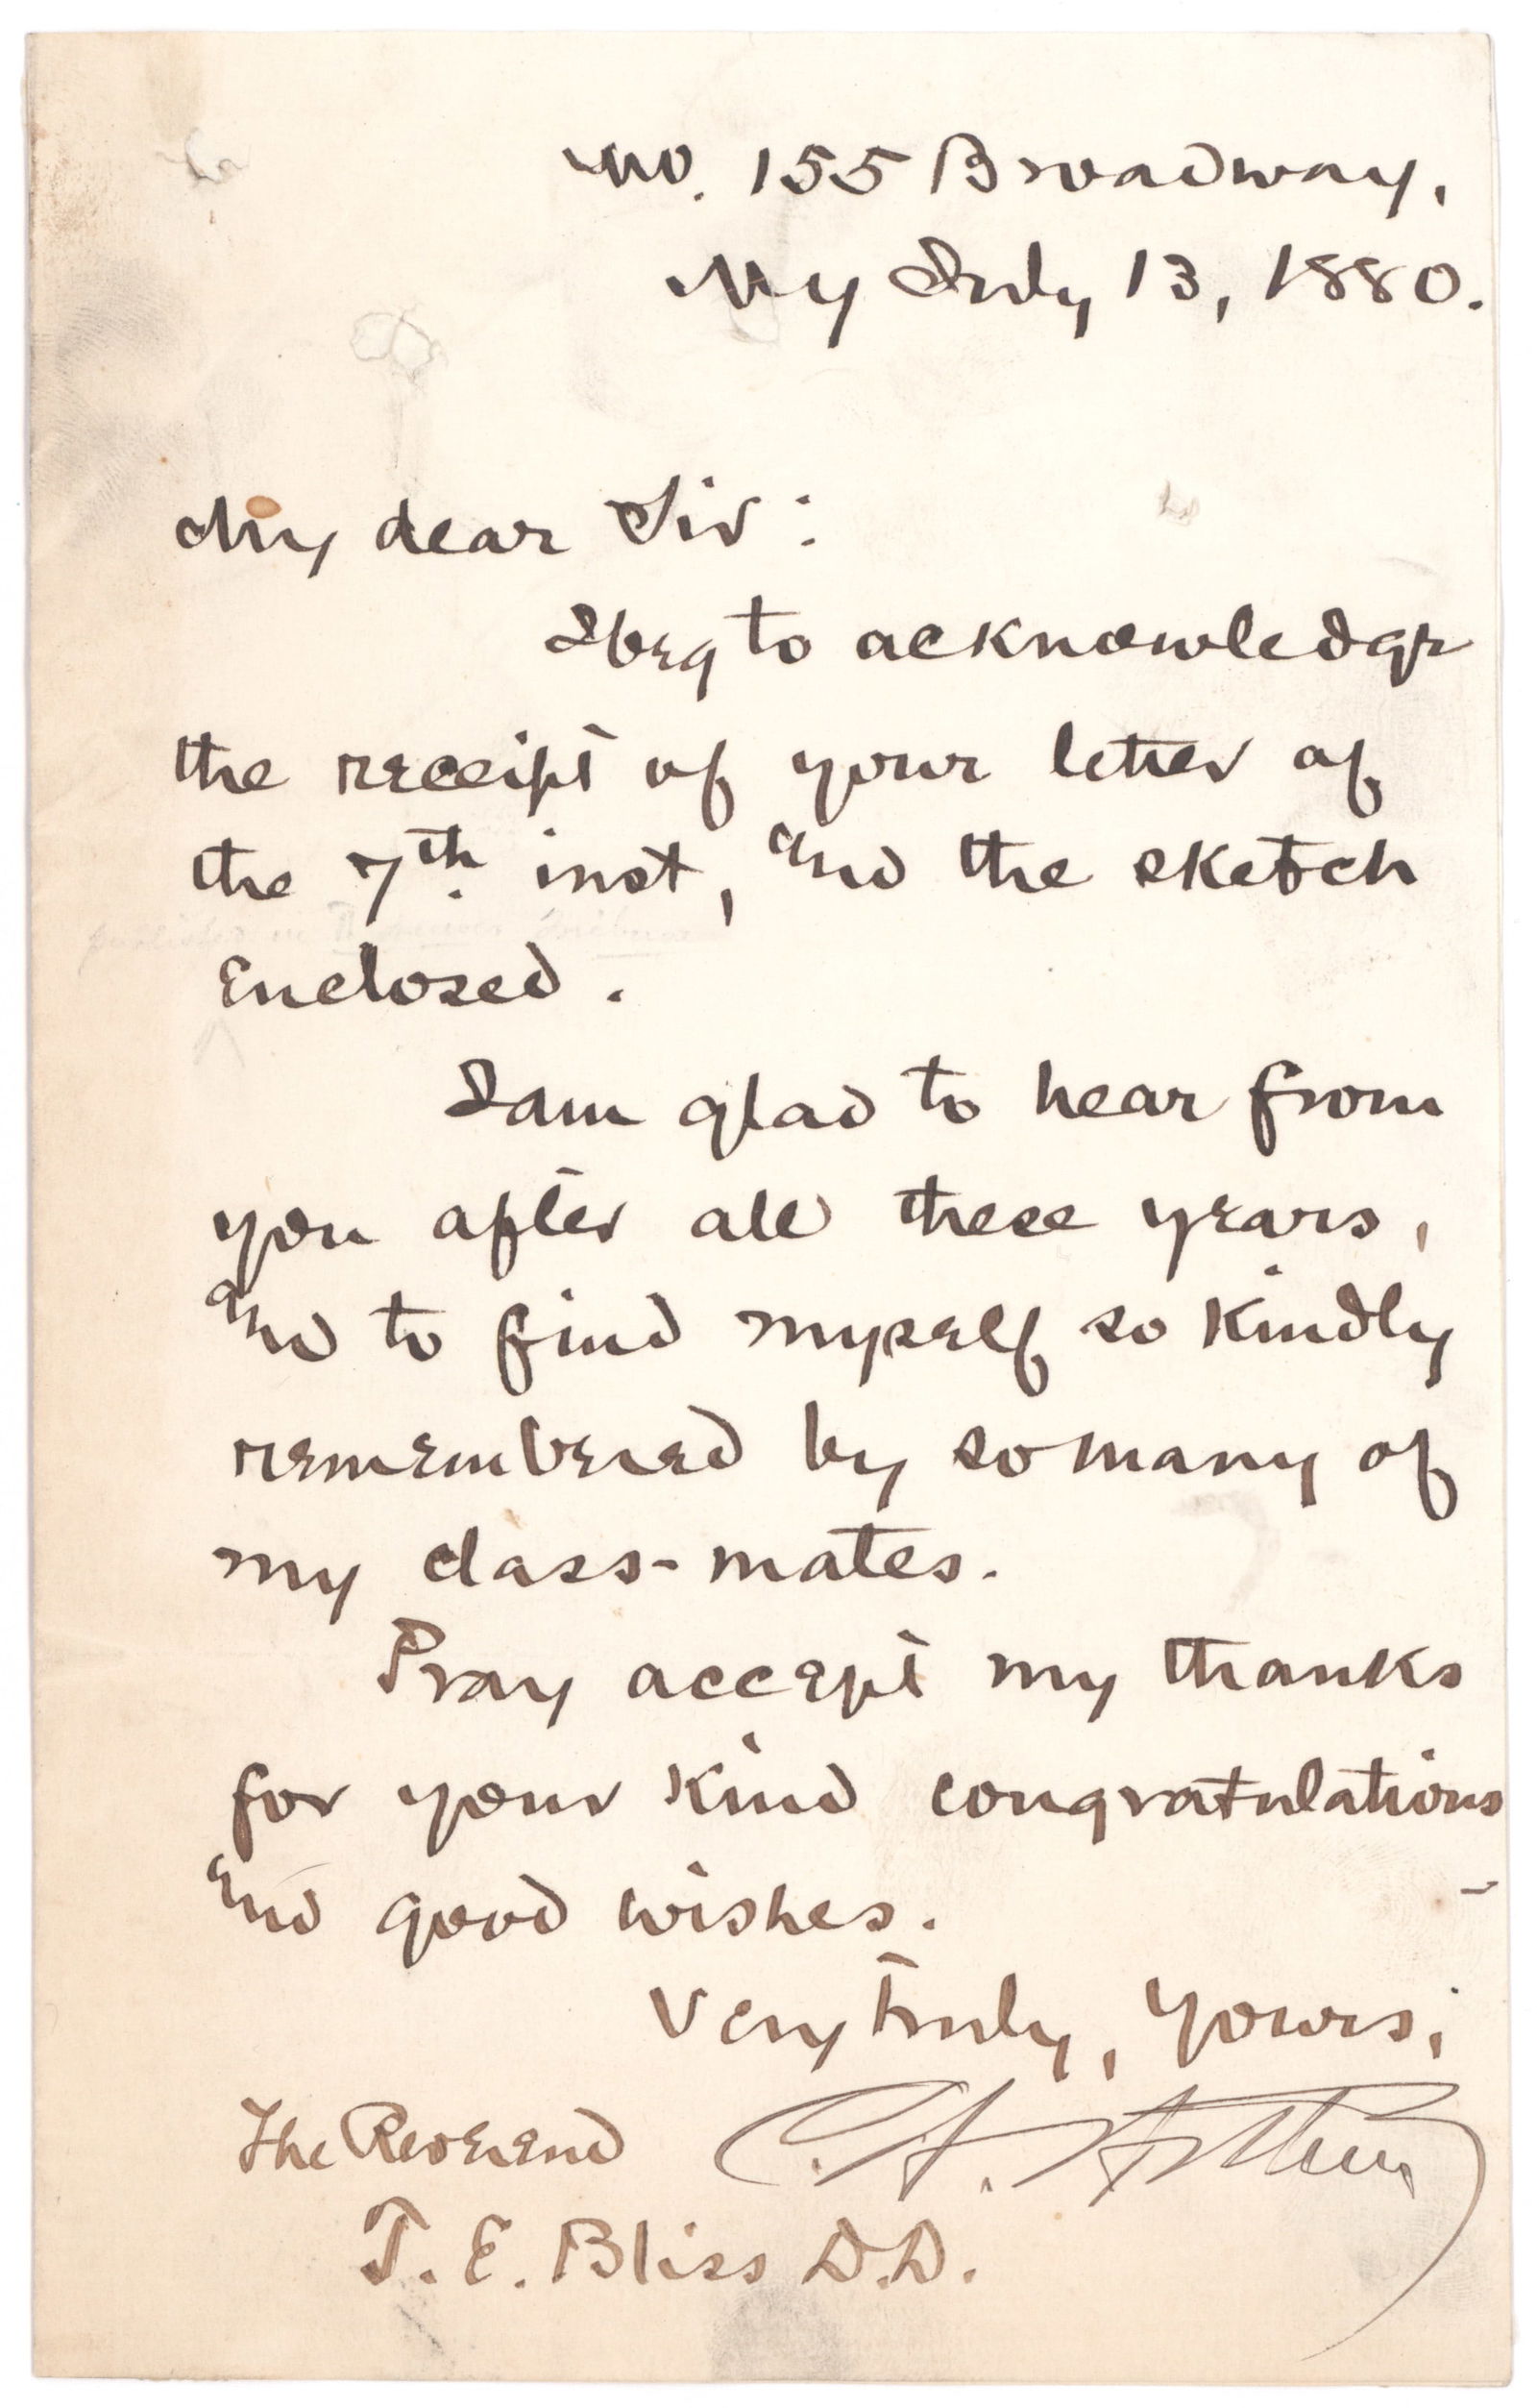 No. 155 Broadway,
NY July 13, 1880.
My dear Sir:
I beg to acknowledge
the receipt of your letter of
the 7th. inst, and the sketch
published in
enclosed.
I am glad to hear from
you after all these years,
and to find myself so kindly
remembered by so many of
my class-mates.
Pray accept my thanks
for your kind congratulations
and good wishes.
Very truly, yours,
The Reverend C. A. Arthur
T. E. Bliss D.D.